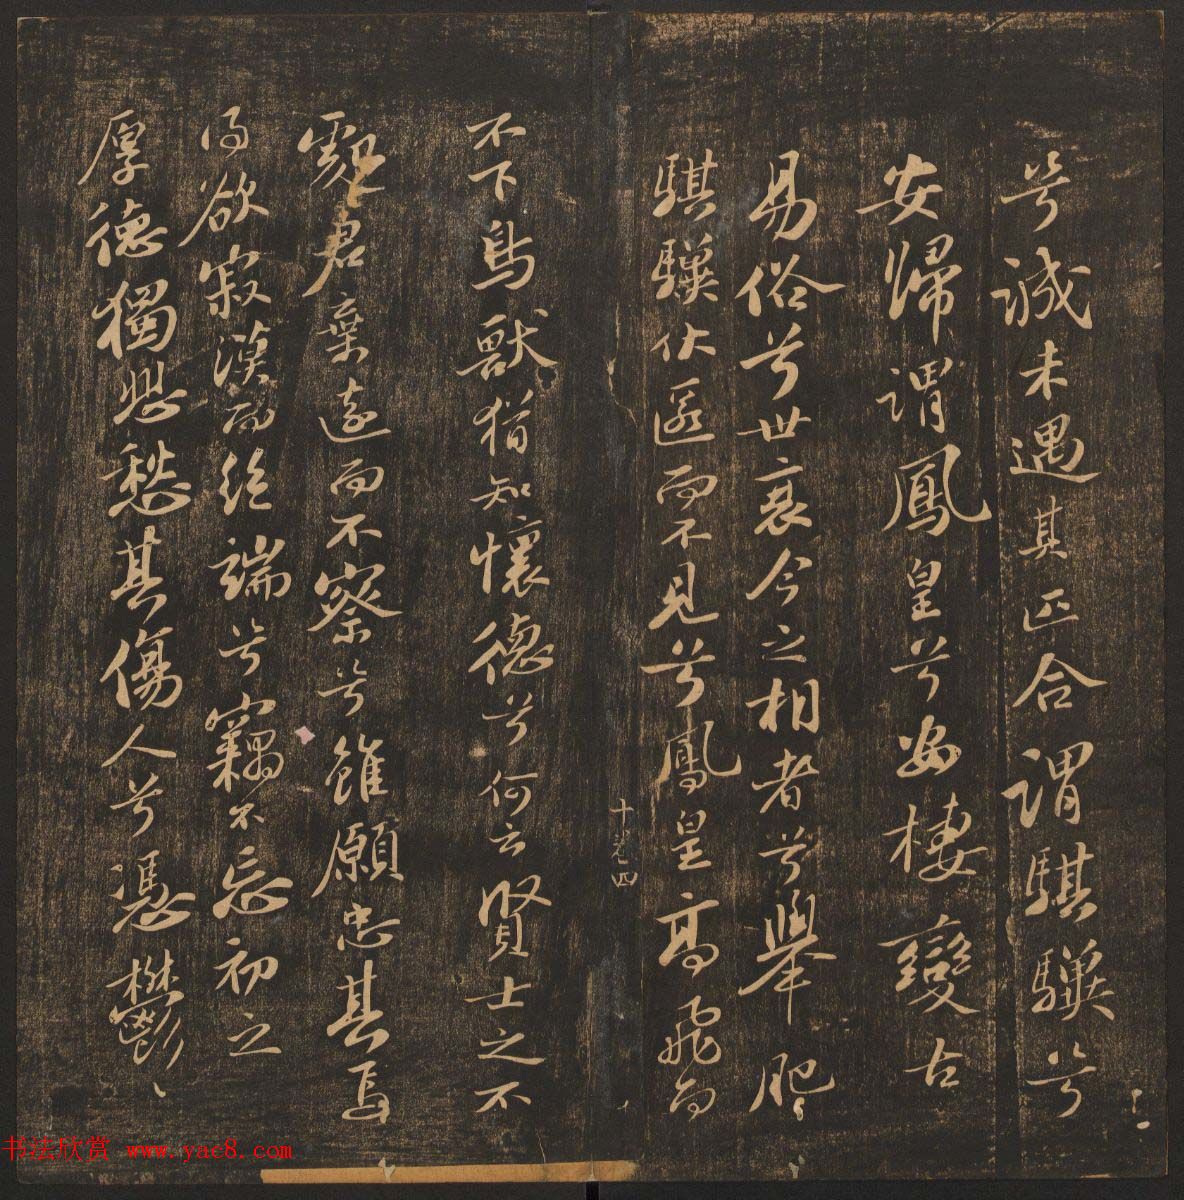 兮誠未遇其匹合謂騏驥兮
安歸謂鳳皇兮安棲變古
易俗兮世衰今之相者兮舉肥
騏驥伏匿而不見兮鳳皇高飛而
不下鳥獸猶知懷德兮何云賢士之不
君棄遠而不察兮雖願忠其焉
得欲寂漠而絕端兮竊不忘初之
厚德獨悲愁其傷人兮馮鬱〻
十卷四
书法欣赏 www.yac8.com